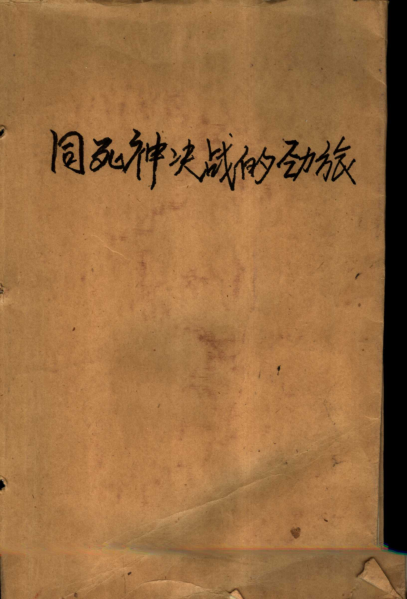 同死神决战的劲旅